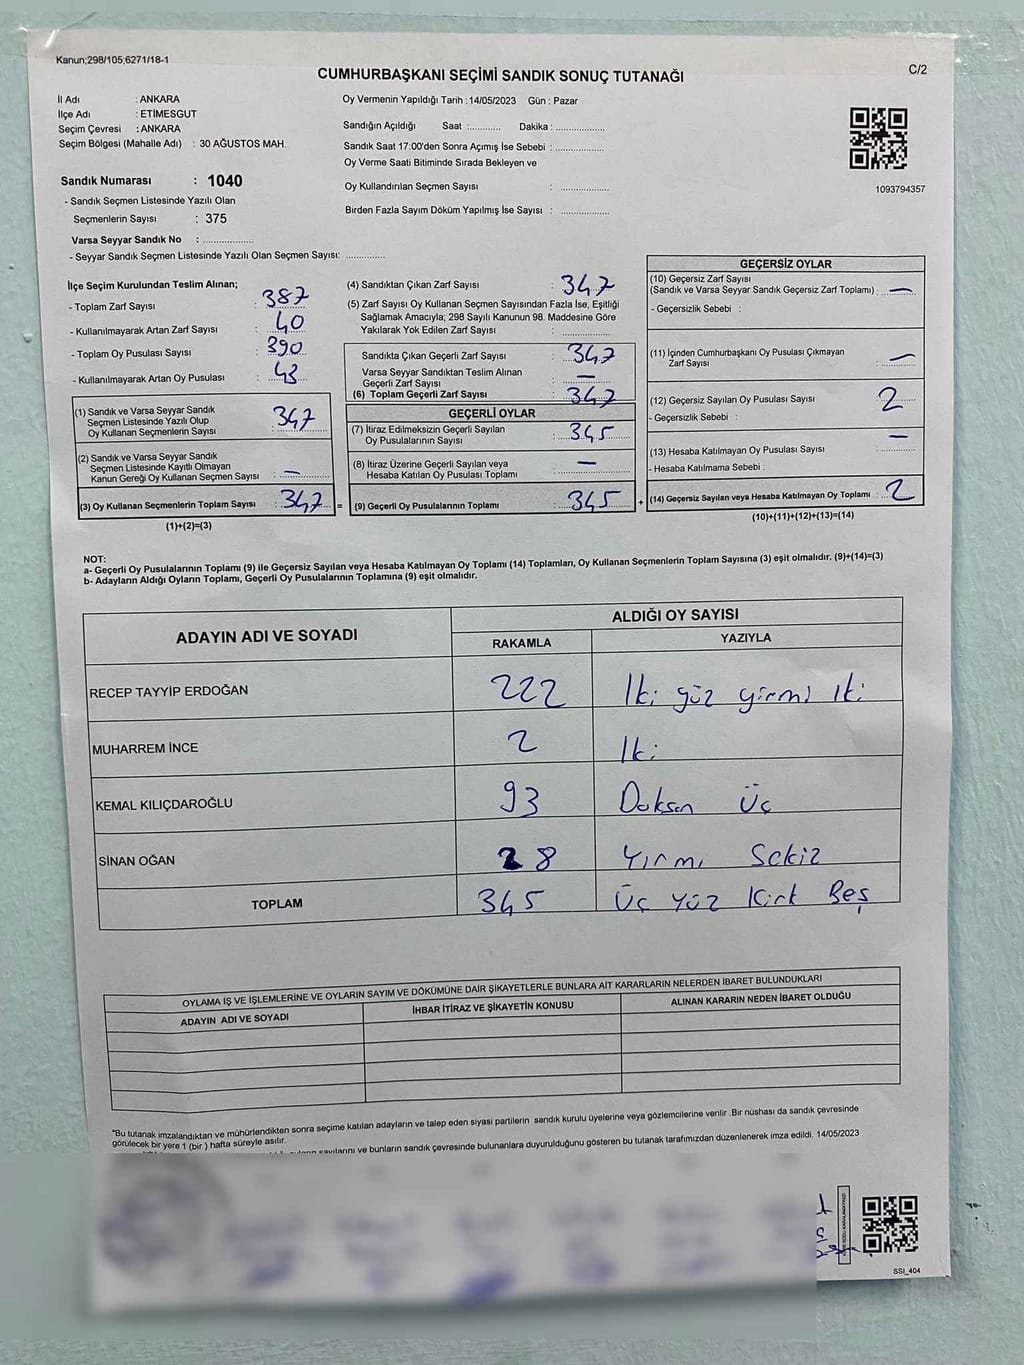 Kanun;298/105;6271/18-1
C/2
CUMHURBAŞKANI SEÇİMİ SANDIK SONUÇ TUTANAĞI
İl Adı : ANKARA
İlçe Adı : ETİMESGUT
Seçim Çevresi : ANKARA
Seçim Bölgesi (Mahalle Adı) : 30 AĞUSTOS MAH.
Sandık Numarası : 1040
- Sandık Seçmen Listesinde Yazılı Olan
Seçmenlerin Sayısı : 375
Varsa Seyyar Sandık No : ..................
- Seyyar Sandık Seçmen Listesinde Yazılı Olan Seçmen Sayısı: ..............
Oy Vermenin Yapıldığı Tarih : 14/05/2023 Gün : Pazar
Sandığın Açıldığı Saat :............ Dakika : ..................
Sandık Saat 17:00'den Sonra Açımış İse Sebebi : ..................
Oy Verme Saati Bitiminde Sırada Bekleyen ve
Oy Kullandırılan Seçmen Sayısı : ..................
Birden Fazla Sayım Döküm Yapılmış İse Sayısı : ..................
1093794357
İlçe Seçim Kurulundan Teslim Alınan;
- Toplam Zarf Sayısı : 387
- Kullanılmayarak Artan Zarf Sayısı : 40
- Toplam Oy Pusulası Sayısı : 390
- Kullanılmayarak Artan Oy Pusulası : 43
(1) Sandık ve Varsa Seyyar Sandık
Seçmen Listesinde Yazılı Olup
Oy Kullanan Seçmenlerin Sayısı : 347
(2) Sandık ve Varsa Seyyar Sandık
Seçmen Listesinde Kayıtlı Olmayan
Kanun Gereği Oy Kullanan Seçmen Sayısı : —
(3) Oy Kullanan Seçmenlerin Toplam Sayısı : 347 =
(1)+(2)=(3)
(4) Sandıktan Çıkan Zarf Sayısı : 347
(5) Zarf Sayısı Oy Kullanan Seçmen Sayısından Fazla İse, Eşitliği
Sağlamak Amacıyla; 298 Sayılı Kanunun 98. Maddesine Göre
Yakılarak Yok Edilen Zarf Sayısı : ..................
Sandıkta Çıkan Geçerli Zarf Sayısı : 347
Varsa Seyyar Sandıktan Teslim Alınan
Geçerli Zarf Sayısı : —
(6) Toplam Geçerli Zarf Sayısı : 347
GEÇERLİ OYLAR
(7) İtiraz Edilmeksizin Geçerli Sayılan
Oy Pusulalarının Sayısı : 345
(8) İtiraz Üzerine Geçerli Sayılan veya
Hesaba Katılan Oy Pusulası Toplamı : —
(9) Geçerli Oy Pusulalarının Toplamı : 345 +
GEÇERSİZ OYLAR
(10) Geçersiz Zarf Sayısı
(Sandık ve Varsa Seyyar Sandık Geçersiz Zarf Toplamı) : —
- Geçersizlik Sebebi :
(11) İçinden Cumhurbaşkanı Oy Pusulası Çıkmayan
Zarf Sayısı : —
(12) Geçersiz Sayılan Oy Pusulası Sayısı : 2
- Geçersizlik Sebebi :
(13) Hesaba Katılmayan Oy Pusulası Sayısı : —
- Hesaba Katılmama Sebebi :
(14) Geçersiz Sayılan veya Hesaba Katılmayan Oy Toplamı : 2
(10)+(11)+(12)+(13)=(14)
NOT:
a- Geçerli Oy Pusulalarının Toplamı (9) ile Geçersiz Sayılan veya Hesaba Katılmayan Oy Toplamı (14) Toplamları, Oy Kullanan Seçmenlerin Toplam Sayısına (3) eşit olmalıdır. (9)+(14)=(3)
b- Adayların Aldığı Oyların Toplamı, Geçerli Oy Pusulalarının Toplamına (9) eşit olmalıdır.
ADAYIN ADI VE SOYADI
ALDIĞI OY SAYISI
RAKAMLA YAZIYLA
RECEP TAYYİP ERDOĞAN 222 İki yüz yirmi iki
MUHARREM İNCE 2 İki
KEMAL KILIÇDAROĞLU 93 Doksan Üç
SİNAN OĞAN 28 Yirmi Sekiz
TOPLAM 345 Üç Yüz Kırk Beş
OYLAMA İŞ VE İŞLEMLERİNE VE OYLARIN SAYIM VE DÖKÜMÜNE DAİR ŞİKAYETLERLE BUNLARA AİT KARARLARIN NELERDEN İBARET BULUNDUKLARI
ADAYIN ADI VE SOYADI İHBAR İTİRAZ VE ŞİKAYETİN KONUSU ALINAN KARARIN NEDEN İBARET OLDUĞU
*Bu tutanak imzalandıktan ve mühürlendikten sonra seçime katılan adayların ve talep eden siyasi partilerin sandık kurulu üyelerine veya gözlemcilerine verilir .Bir nüshası da sandık çevresinde
görülecek bir yere 1 (bir ) hafta süreyle asılır.
ve bunların sandık çevresinde bulunanlara duyurulduğunu gösteren bu tutanak tarafımızdan düzenlenerek imza edildi. 14/05/2023
SSI_404